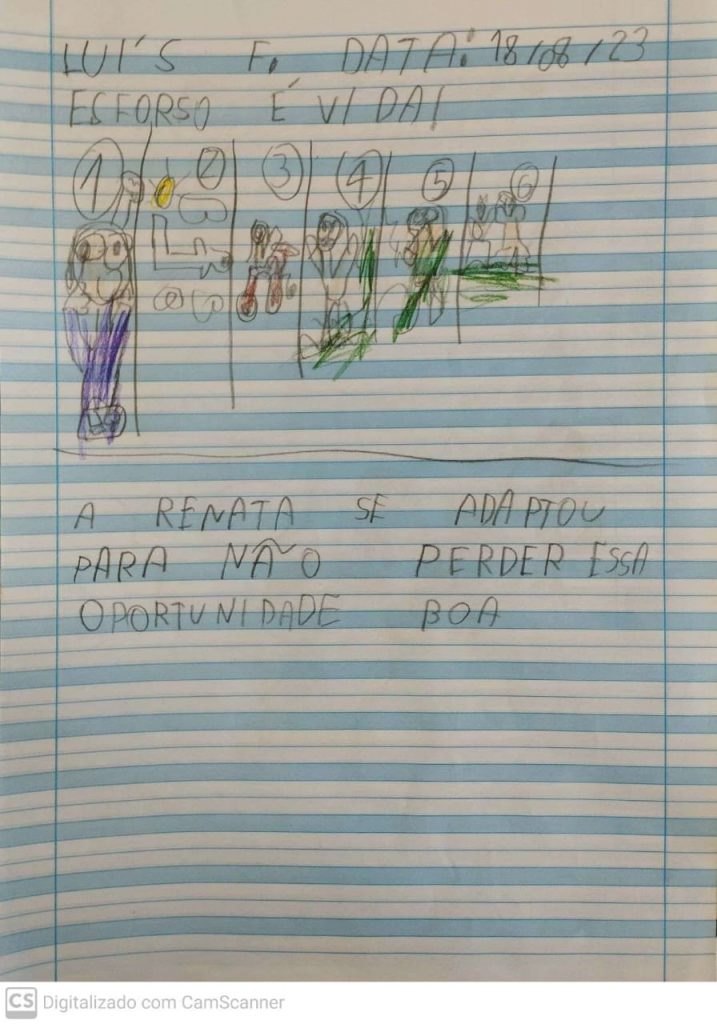 LUÍS F. DATA: 18/08/23
ESFORSO É VIDA!
1 2 3 4 5 6
A RENATA SE ADAPTOU
PARA NÃO PERDER ESSA
OPORTUNIDADE BOA
CS Digitalizado com CamScanner